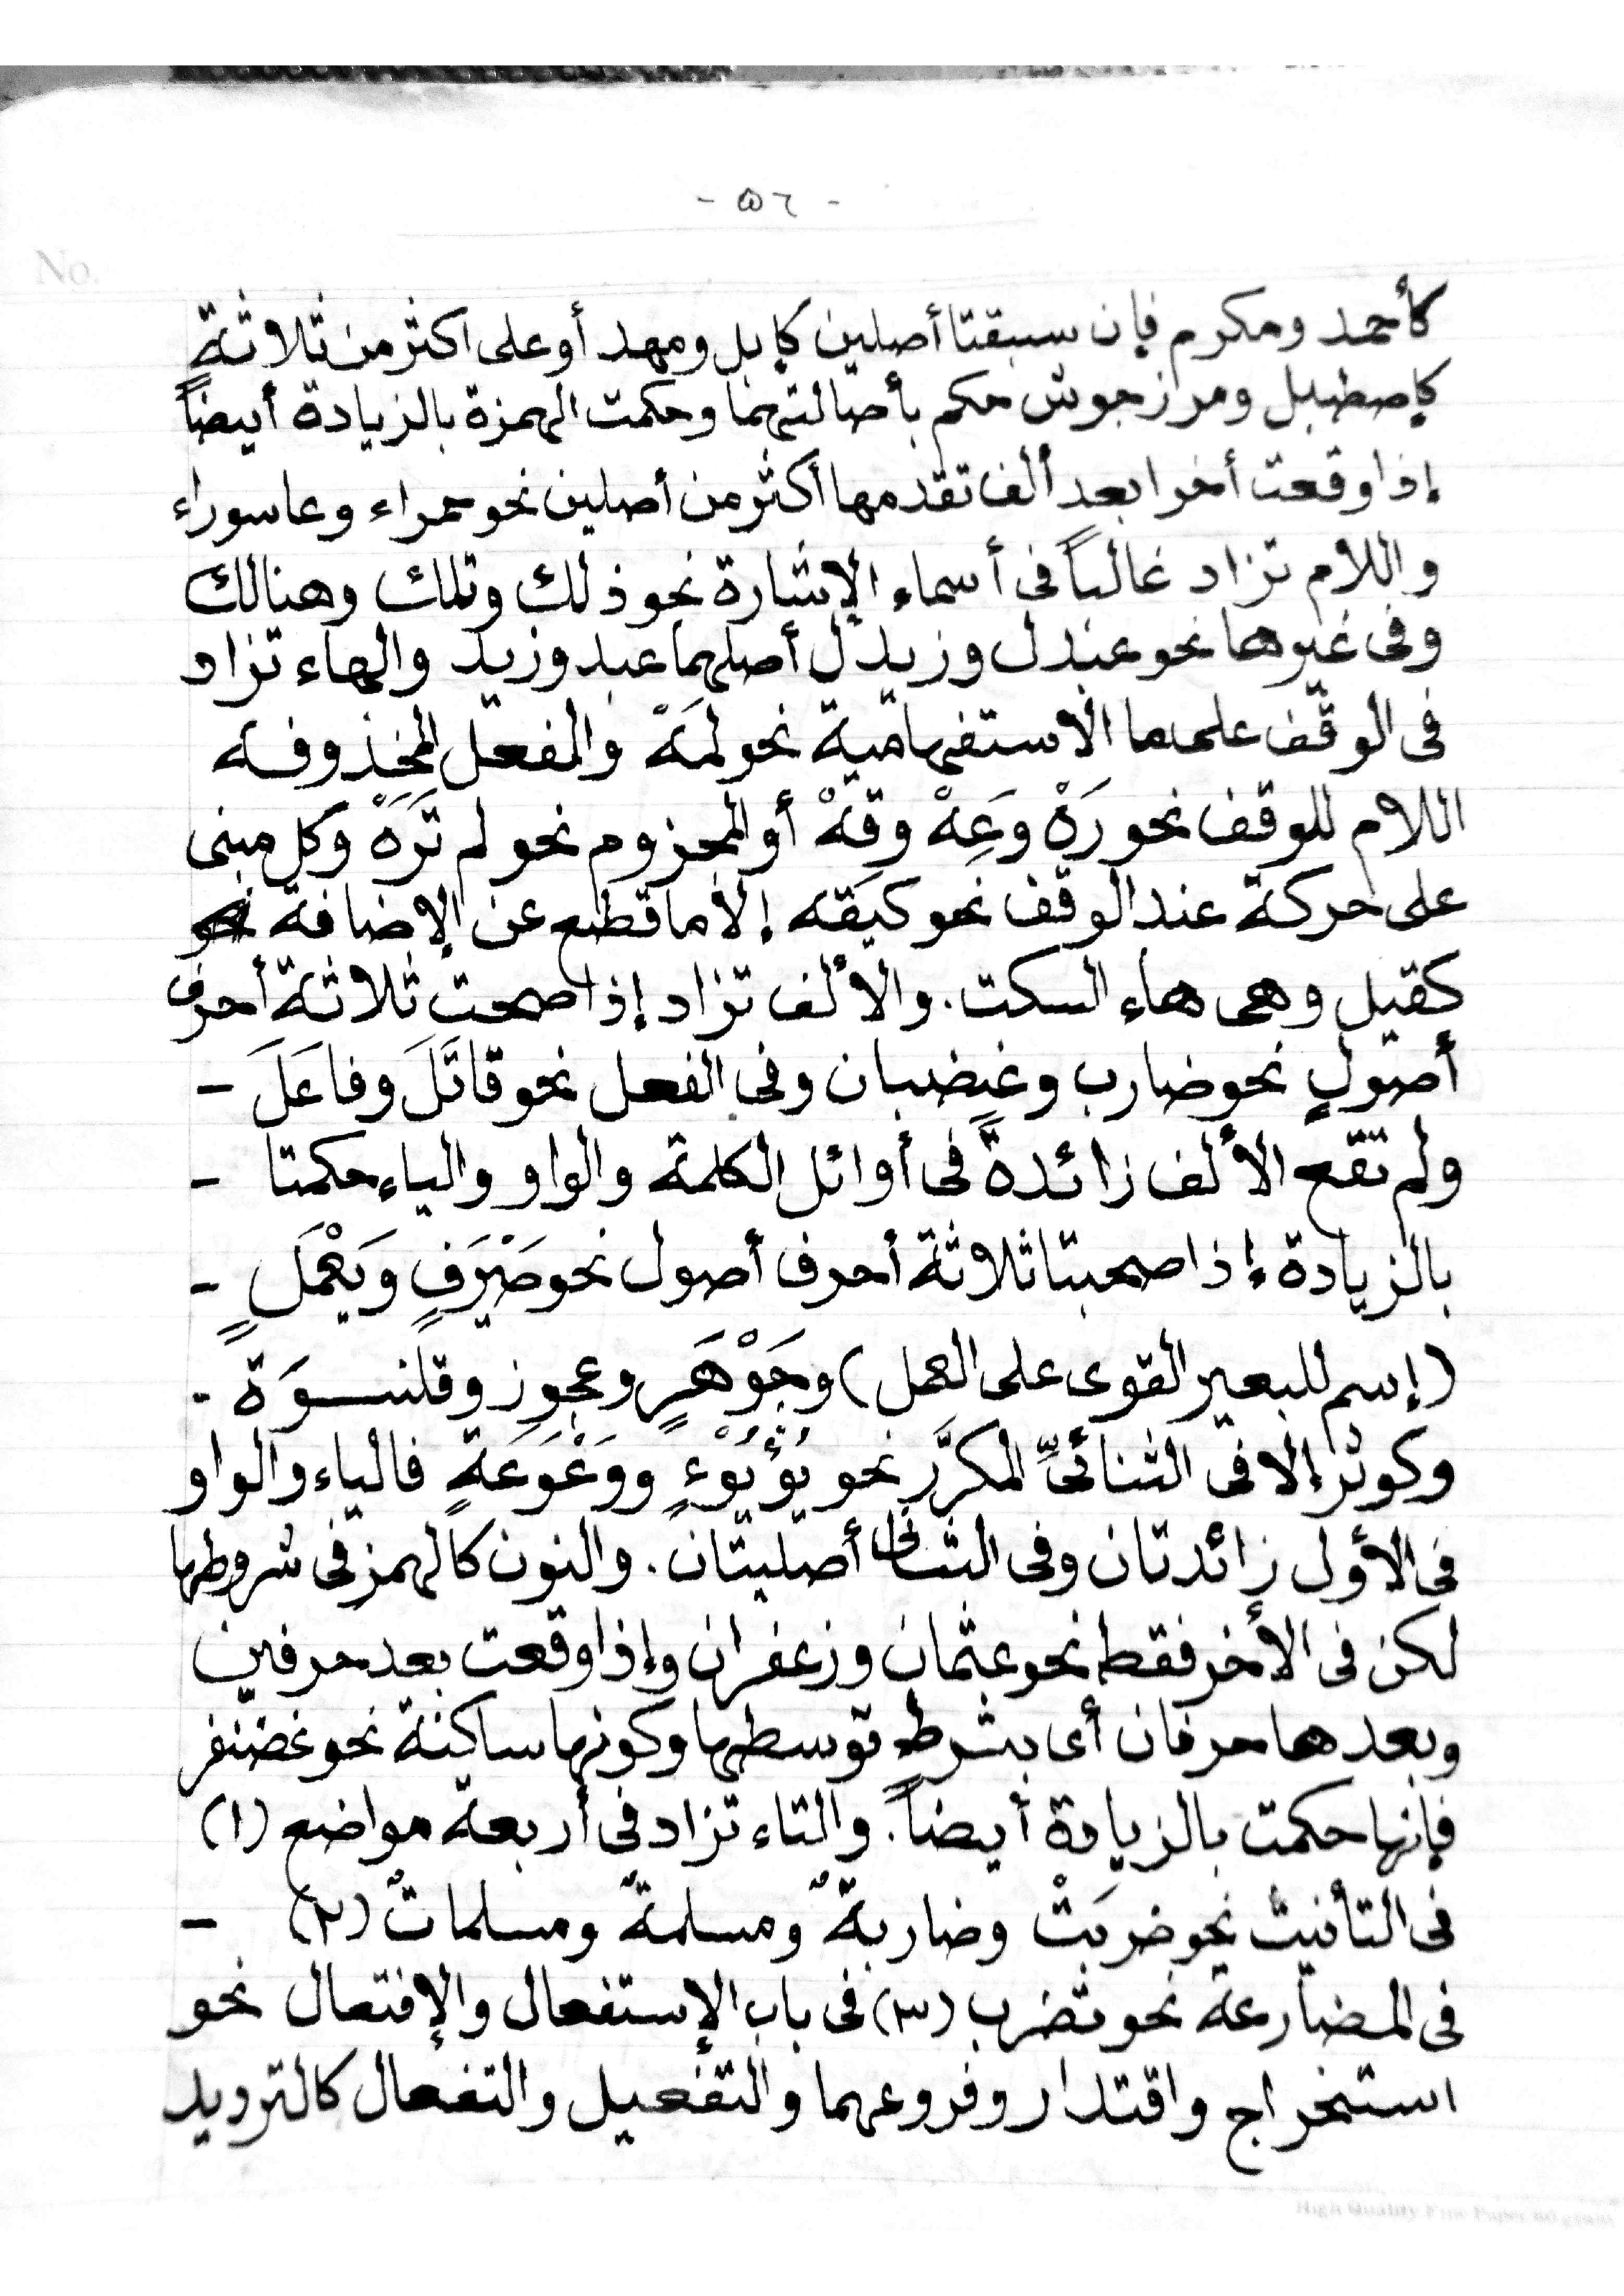 - ٥٦ -
No.
كأحمد ومكرم فإن سبقتا أصلين كإبل ومهد أو على اكثر من ثلاثةٍ
كإصطبل ومرزجوش حكم بأصالتهما وحكمت الهمزة بالزيادة أيضاً
إذا وقعت أخرا بعد ألف تقدمها أكثر من أصلين نحو حمراء وعاسوراء
واللام تزاد غالباً فى أسماء الإشارة نحو ذلك وتلك وهنالك
وفى غيرها نحو عبدل وزيدل أصلهما عبد وزيد والهاء تزاد
فى الوقف على ما الاستفهامية نحو لمَهْ والمفعل المخذوفه
اللام للوقف نحو رَهْ وَعِهْ وقِهْ أو المجزوم نحو لم تَرَهْ وكل مبنى
على حركة عند الوقف نحو كيَفَه إلا ما قطع عن الإضافة نحو
كقبل وهى هاء السكت. والألف تزاد إذا صحت ثلاثة أحرف
أصولٍ نحو ضارب وغضبان وفى الفعل نحو قاتَلَ وفاعَلَ -
ولم تقع الألف زائدةً فى أوائل الكلمة والواو والياء حكمتا -
بالزيادة إذا صحبتا ثلاثة أحرف أصول نحو صَيْرَفٍ وَيَعْمَلٍ -
(إسم للبعير القوى على العمل) وجَوْهَرٍ وعجوز وقلنسوَة -
وكوثر إلا فى الثنائىِّ المكرَّر نحو يُؤْيُوْءٍ ووَعْوَعَةٍ فالياء والواو
فى الأول زائدتان وفى الثانى أصليتان. والنون كالهمز فى شروطها
لكن فى الأخر فقط نحو عثمان وزعفران وإذا وقعت بعد حرفين
وبعدها حرفان أى بشرط توسطها وكونها ساكنة نحو غضنفر
فإنها حكمت بالزيادة أيضاً. والتاء تزاد فى أربعة مواضع (١)
فى التأنيث نحو ضربَتْ وضاربةٌ ومسلمةٌ ومسلماتٌ (٢) -
فى المضارعة نحو تضرب (٣) فى باب الإستفعال والإفتعال نحو
استخراج واقتدار وفروعهما والتفعيل والتفعال كالترديد
High Quality Fine Paper 60 gram